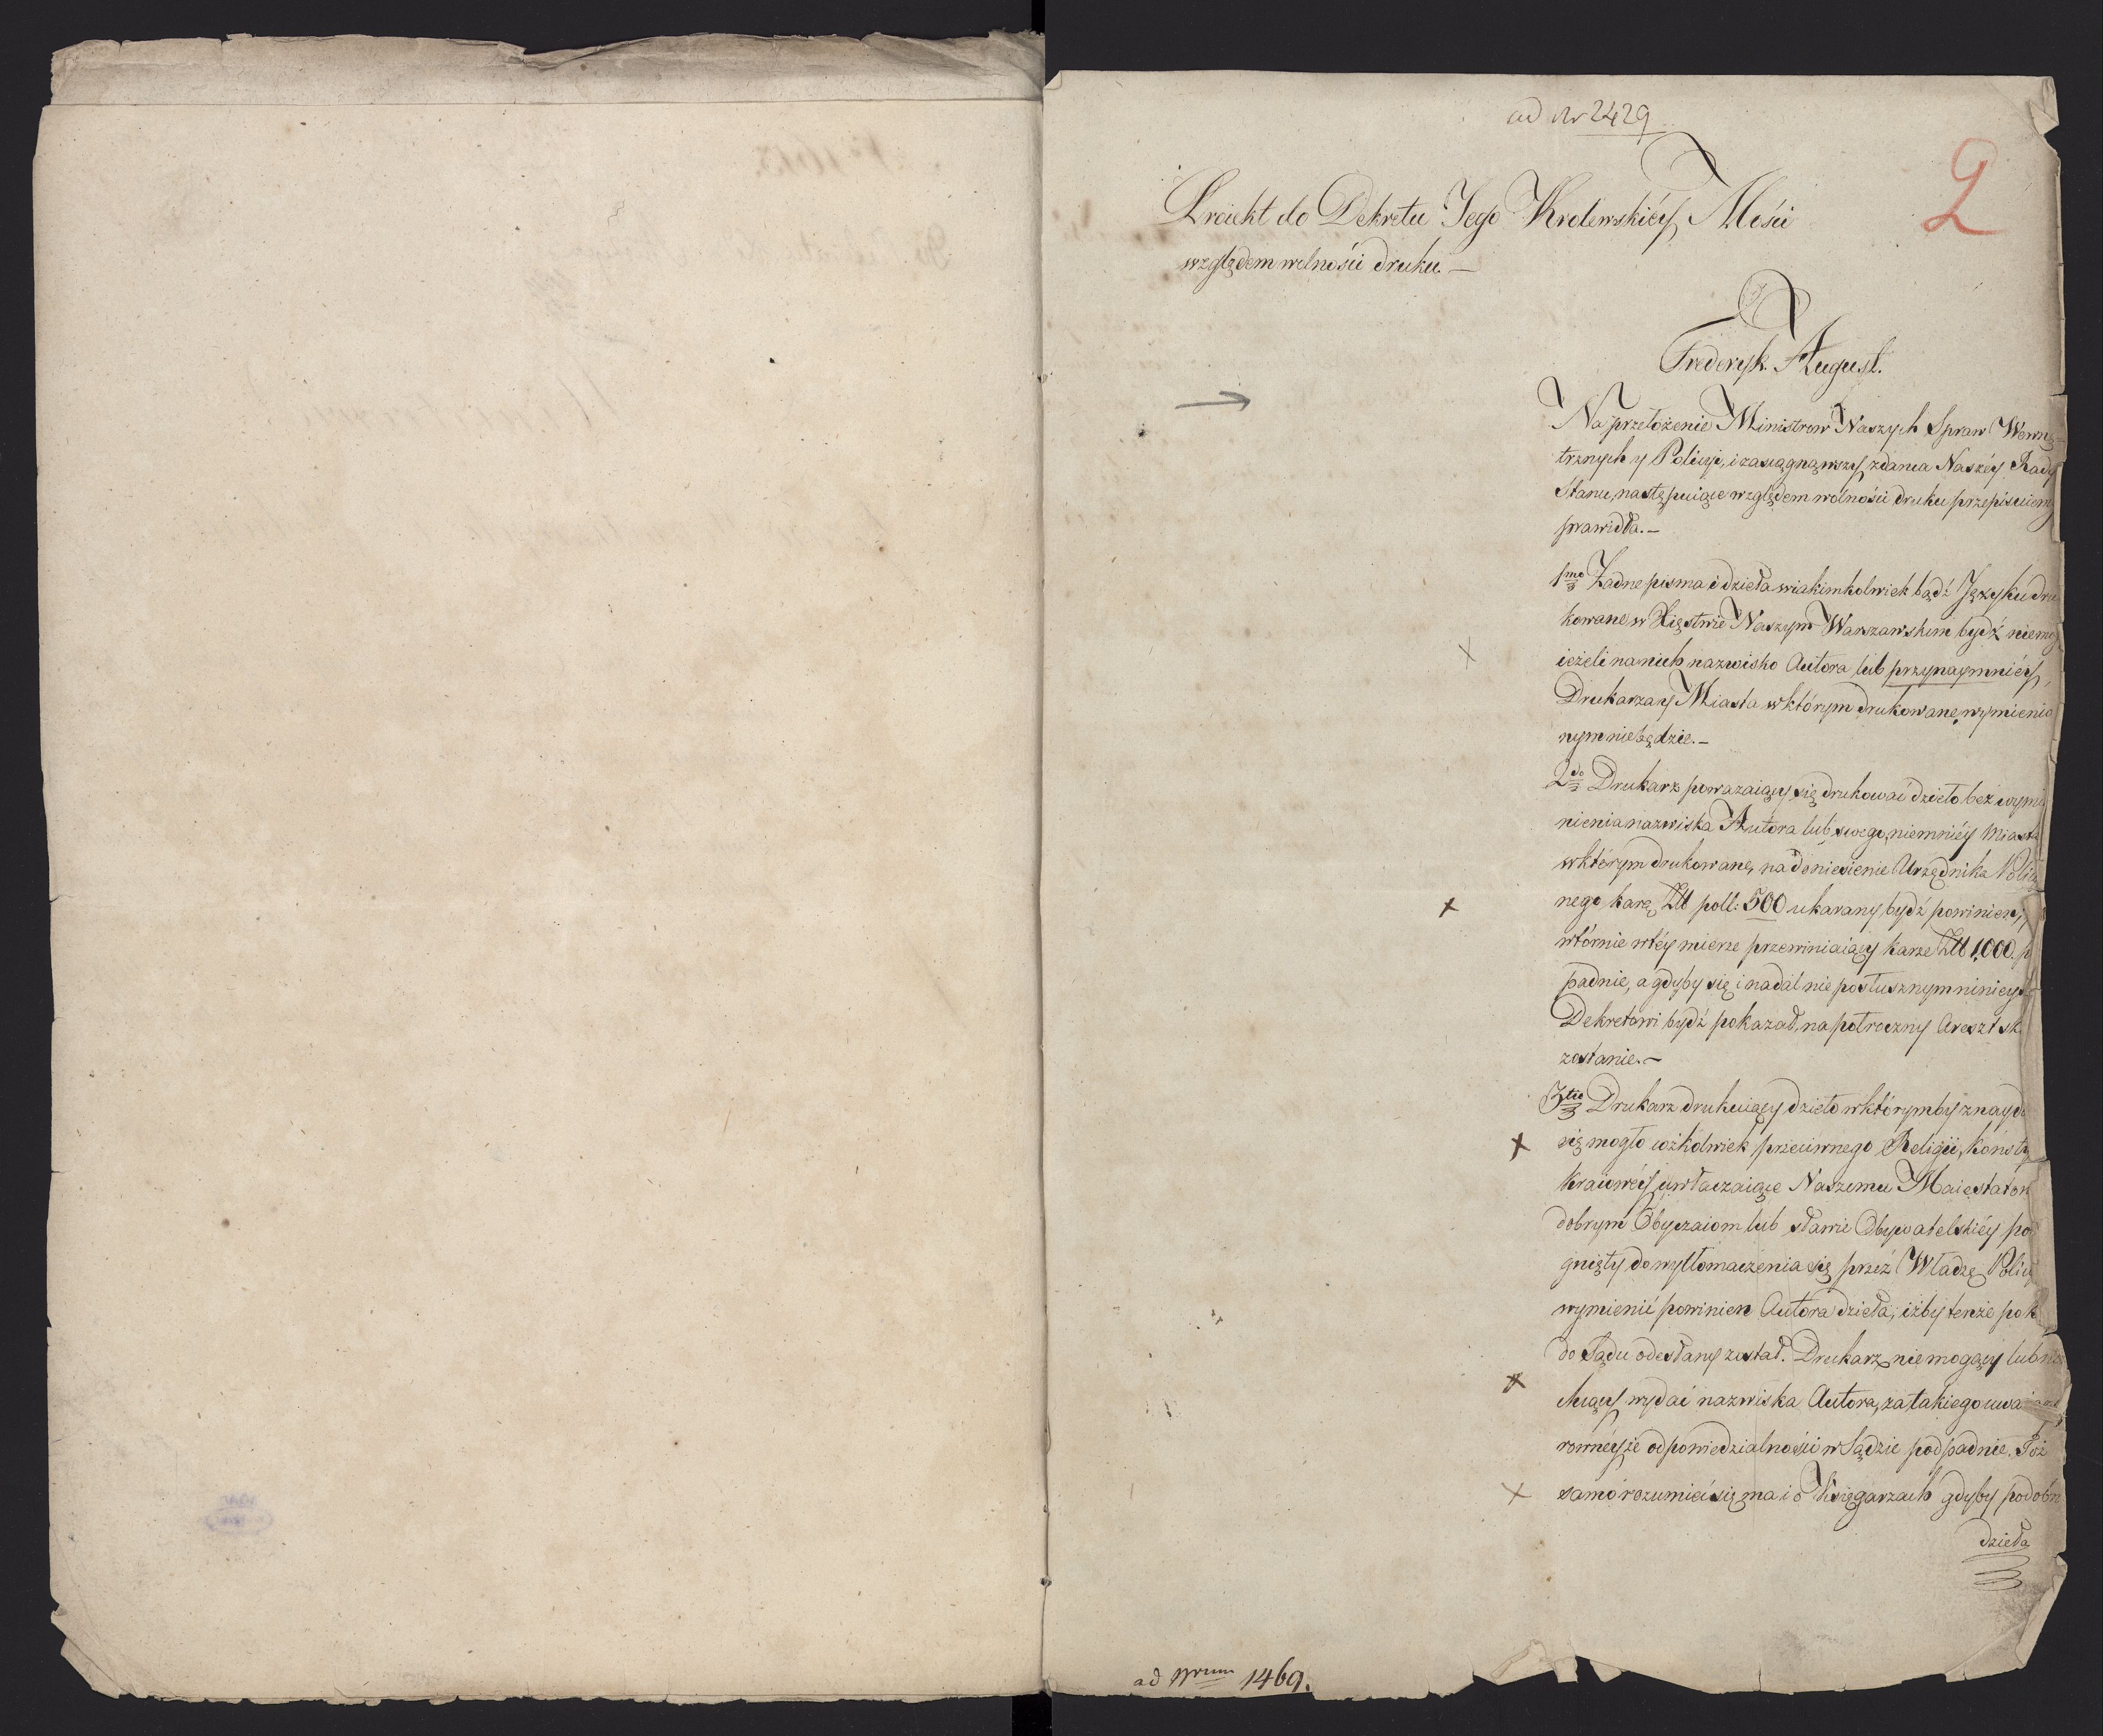 ad Nr 2429
2
Proiekt do Dekretu Jego Krolewskiéy Mości
względem wolności druku. —
Frederyk August.
Na przełożenie Ministrow Naszych Spraw Wewnę-
trznych y Policyi, i zasiągnąwszy zdania Naszéy Rady
Stanu, następuiące względem wolności druku przepisuiemy
prawidła. —
1mo Żadne pisma i dzieła w iakimkolwiek bądź Języku dru
kowane w Xięstwie Naszym Warszawskim bydź niemo
ieżeli na nich nazwisko Autora lub przynaymniéy,
Drukarza y Miasta w którym drukowane, wymienio
nym niebędzie. —
2do Drukarz poważaiący się drukować dzieło bez wymi
nienia nazwiska Autora lub swego, niemniéy Miasta
w którym drukowane, na doniesienie Urzędnika Policy
nego karą Złł poll: 500 ukarany bydź powinien,
wtórnie w téy mierze przewiniaiący karze Złł 1,000. p
padnie, a gdyby się i nadal nie posłusznym ninieysze
Dekretowi bydź pokazał, na połroczny Areszt sk
zostanie. —
3tio Drukarz drukuiący dzieło w którymby znayd
się mogło cożkolwiek przeciwnego Religii, Konsty
Kraiowéy, uwłaczaiące Naszemu Maiestatow
dobrym Obyczaiom lub sławie Obywatelskiéy po
gnięty do wytłomaczenia się przez Władzę Policy
wymienić powinien Autora dzieła, iżby tenże po
do Sądu odesłany został. Drukarz niemogący lub nie
chcący wydać nazwiska Autora, za takiego uważany
rownéyże odpowiedzialności w Sądzie podpadnie. Toż
samo rozumieć się ma i o Xięgarzach gdyby podobne
dzieła
ad Nrum 1469.